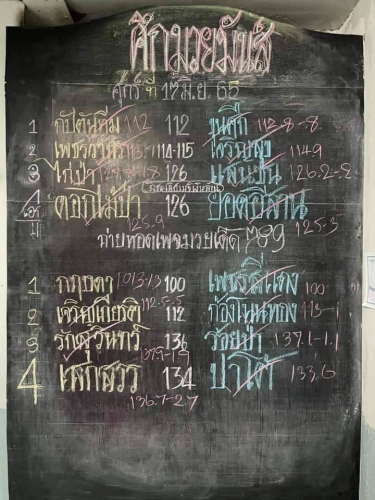 ศึกมวยมันส์
ศุกร์ ที่ 17 มิ.ย. 65
1 กัปตันทีม 112 112 ขุนศึก 112.8-.8
2 114-115 114.9
3 ไก่ป่า 126 แสนชัน 126.2-.2
4 ดอกไม้ป่า 126 ยอดอีสาน
125.9 125.3
ถ่ายทอดเพจมวยเด็ด 789
1 กฤษดา 101.3-1.3 100 เพชรสีแดง 100
2 เจริญเกียรติ 112.5-.5 112 ก้องไพนทอง 113-1
3 รักสุรินทร์ 136 ร้อยป่า 137.1-1.1
137.9-1.9
4 เพกสวร 134 ป่าโต 133.6
136.7-2.7